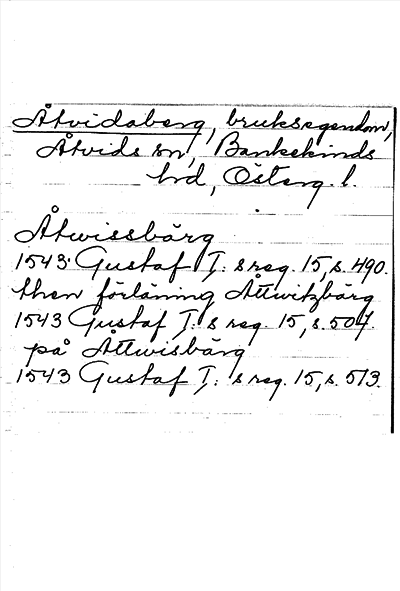 Åtvidaberg, bruksegendom,
Åtvids sn, Bankekinds
hd, Österg. l.
Åtwissbärg
1543 Gustaf I:s reg. 15, s. 490.
then förläning Åttwitzbärg
1543 Gustaf I:s reg. 15, s. 507.
på Åttwisbärg
1543 Gustaf I:s reg. 15, s. 513.